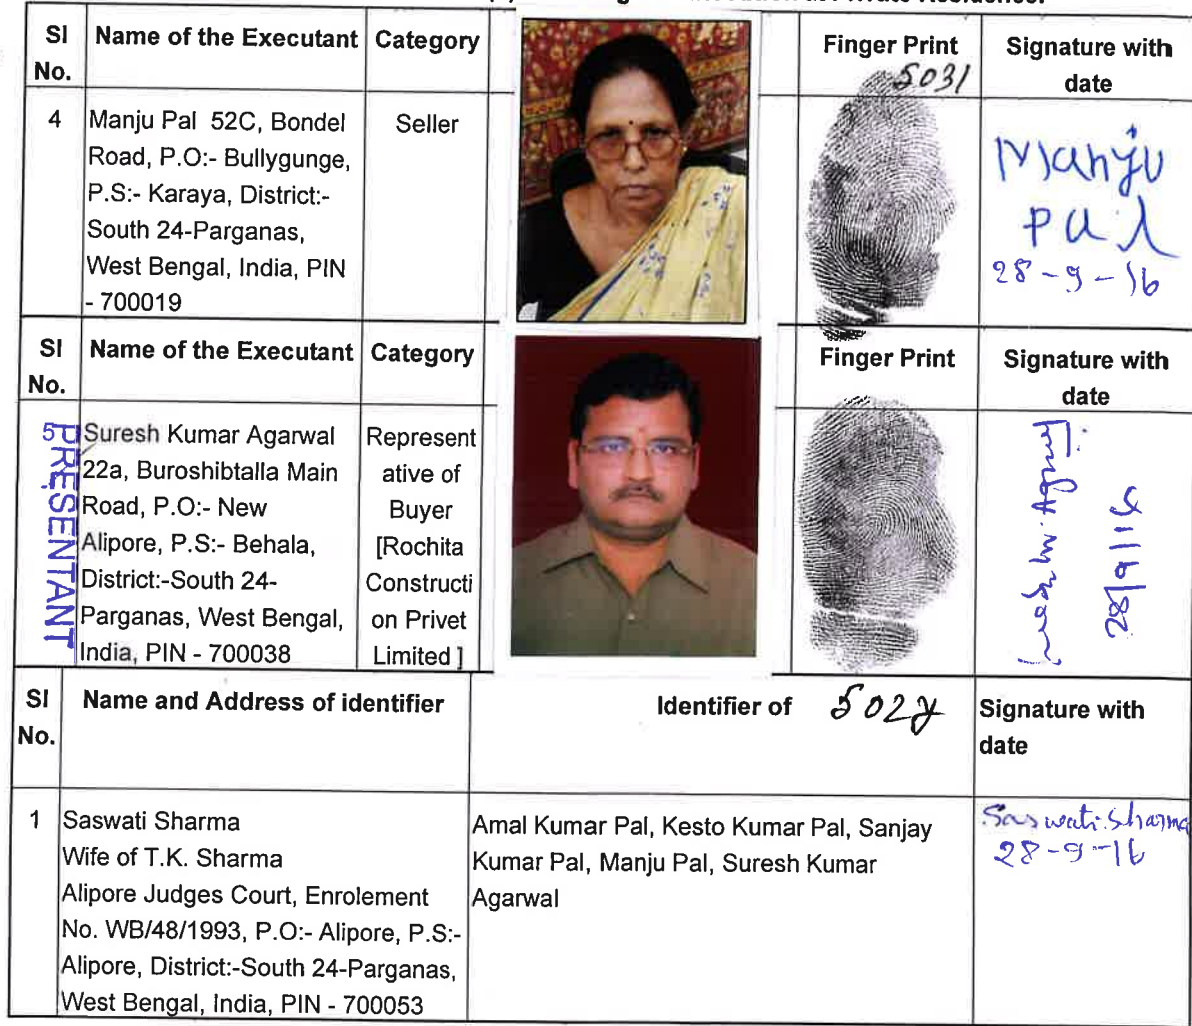 Sl No. Name of the Executant Category Finger Print Signature with date
5031
4 Manju Pal 52C, Bondel Road, P.O:- Bullygunge, P.S:- Karaya, District:- South 24-Parganas, West Bengal, India, PIN - 700019
Seller
Manju
Pal
28-9-16
Sl No. Name of the Executant Category Finger Print Signature with date
5 Suresh Kumar Agarwal 22a, Buroshibtalla Main Road, P.O:- New Alipore, P.S:- Behala, District:-South 24-Parganas, West Bengal, India, PIN - 700038
PRESENTANT
Represent
ative of
Buyer
[Rochita
Constructi
on Privet
Limited ]
28/9/16
Sl No. Name and Address of identifier Identifier of Signature with date
1 Saswati Sharma
Wife of T.K. Sharma
Alipore Judges Court, Enrolement
No. WB/48/1993, P.O:- Alipore, P.S:-
Alipore, District:-South 24-Parganas,
West Bengal, India, PIN - 700053
Amal Kumar Pal, Kesto Kumar Pal, Sanjay
Kumar Pal, Manju Pal, Suresh Kumar
Agarwal
Saswati Sharma
28-9-16